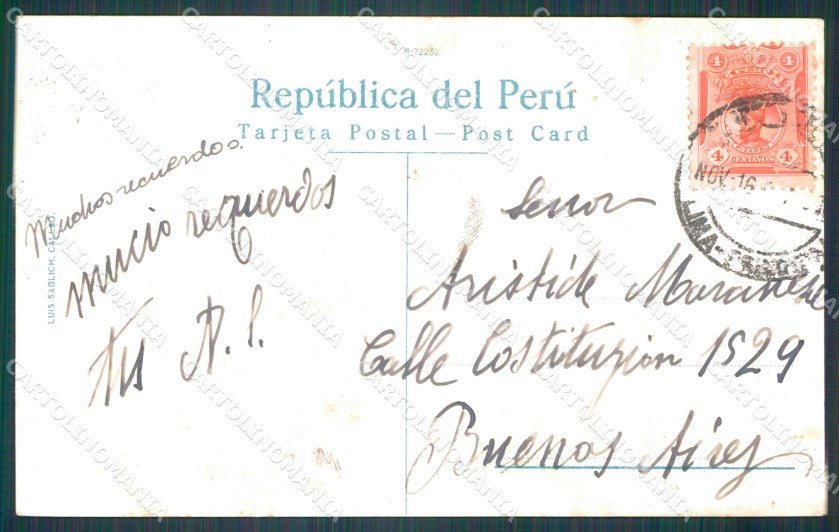 R-72252
República del Perú
Tarjeta Postal — Post Card
4 4
4 CENTAVOS 4
NOV 16
LIMA
Muchos recuerdos.
mucio requerdos
A. S.
LUIS SABLICH. CALLAO.
Senor
Aristide Maranese
Calle Costituzion 1529
Buenos Aires
CARTOLINOMANIA